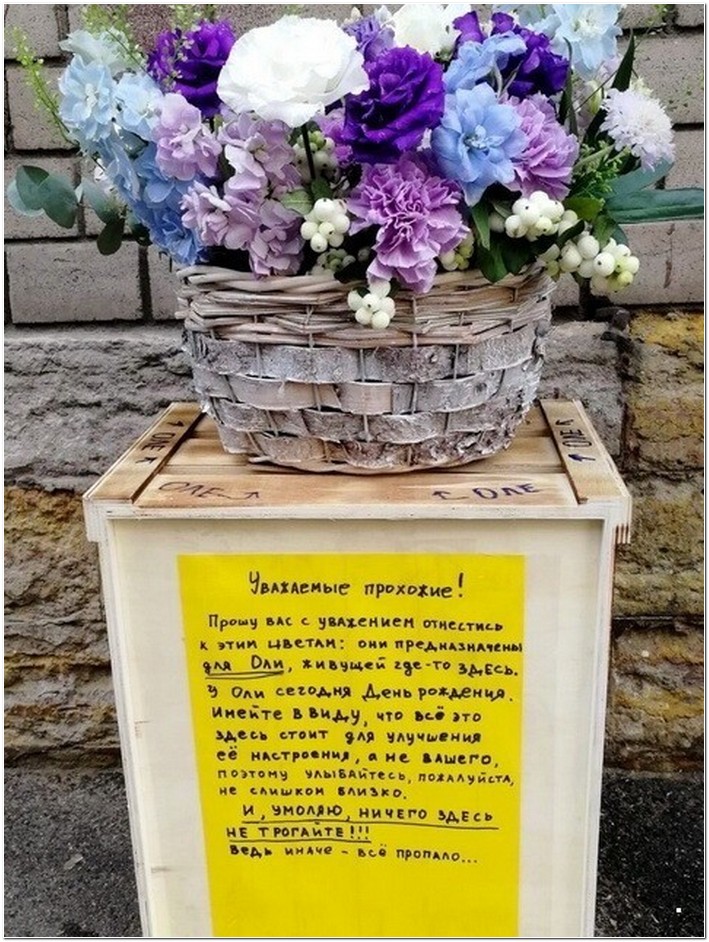 ОЛЕ
ОЛЕ
ОЛЕ
ОЛЕ
Уважаемые прохожие!
Прошу вас с уважением отнестись
к этим цветам: они предназначены
для Оли, живущей где-то здесь.
У Оли сегодня День рождения.
Имейте ввиду, что всё это
здесь стоит для улучшения
её настроения, а не вашего,
поэтому улыбайтесь, пожалуйста,
не слишком близко.
И, умоляю, ничего здесь
не трогайте!!!
Ведь иначе - всё пропало...